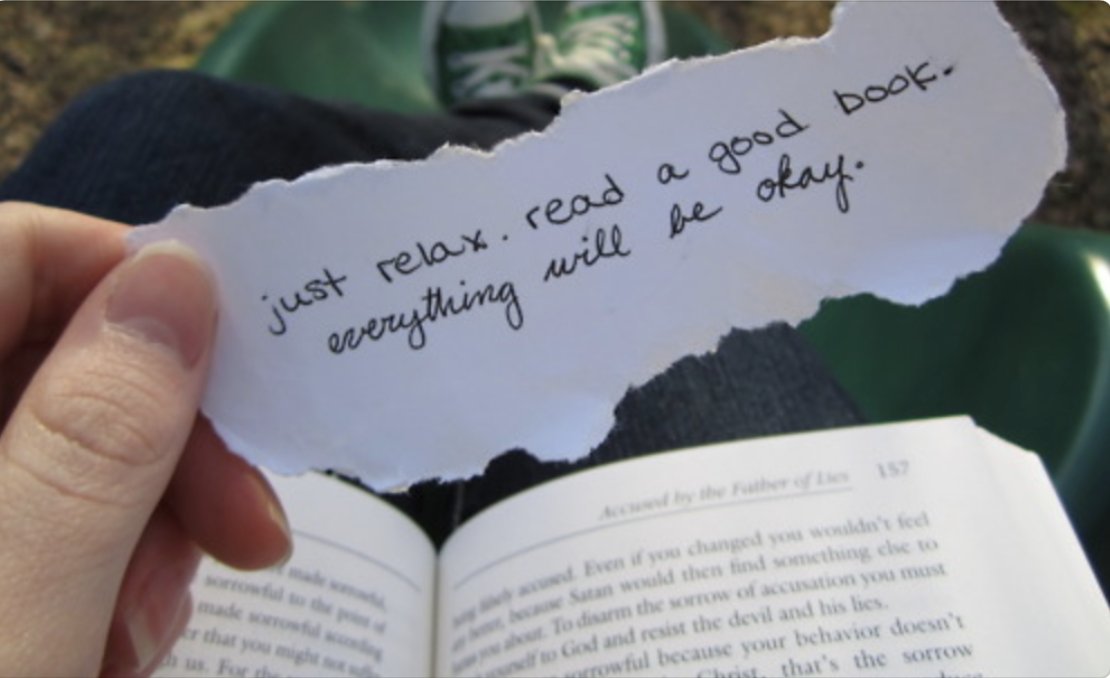 just relax. read a good book.
everything will be okay.
Accused by the Father of Lies 157
made sorrowful,
sorrowful to the point of
made sorrowful according
that you might not suffer
us. For the
falsely accused. Even if you changed you wouldn't feel
better, because Satan would then find something else to
you about. To disarm the sorrow of accusation you must
yourself to God and resist the devil and his lies.
sorrowful because your behavior doesn't
Christ, that's the sorrow